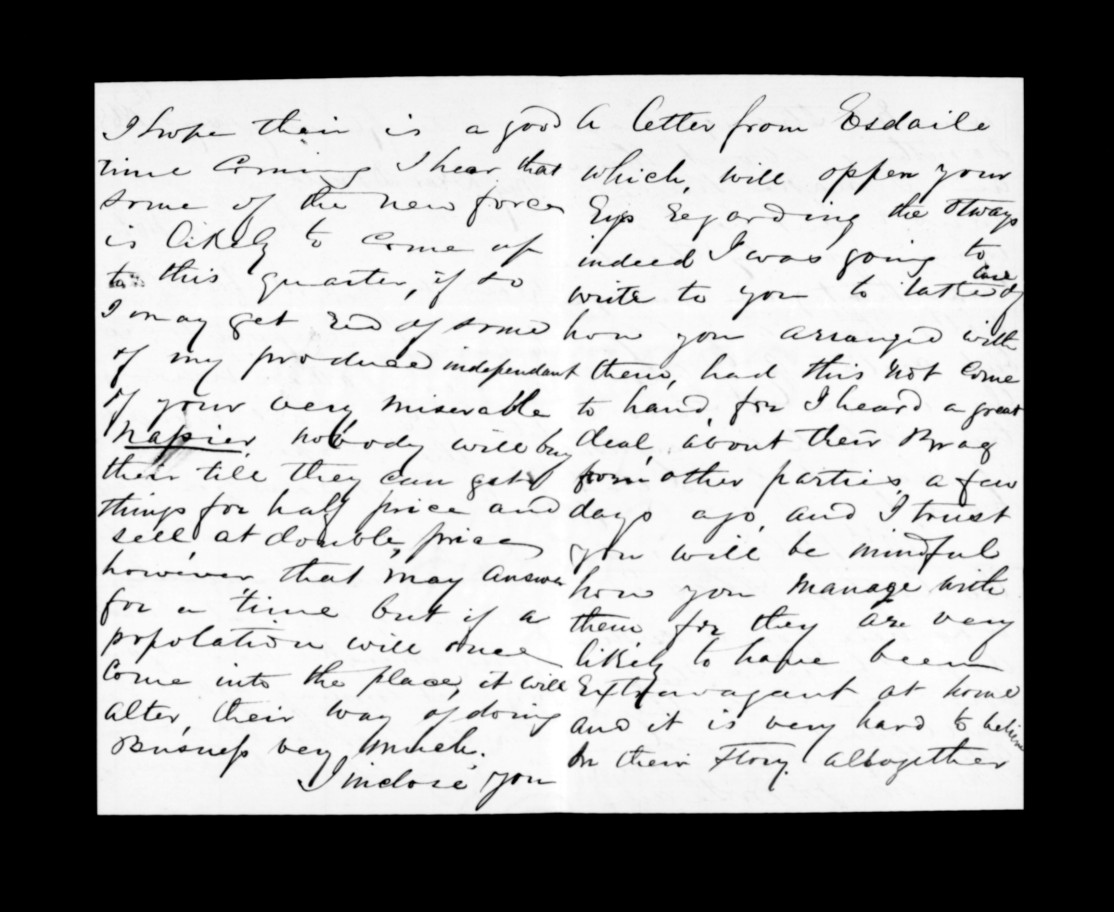 I hope their is a good
time coming I hear that
some of the new force
is likely to come up
to this quarter, if so
I may get red of some
of my produce independant
of your very miserable
Napier, nobody will buy
their till they can get
things for half price and
sell, at double, price
however that may answer
for a time but if a
popolation will once
come into the place, it will
alter, their way of doing
Busness very much.
I inclose you
a letter from Esdaile
which, will oppen your
Eys regarding the Otways
indeed I was going to
write to you to take care of
how you arranged with
them, had this not come
to hand, for I heard a great
deal, about their Brag
from other parties, a few
days ago, and I trust
you will be mindful
how you manage with
them for they are very
likely to have been
Extravagant at home
and it is very hard to believe
in their Story. altogether